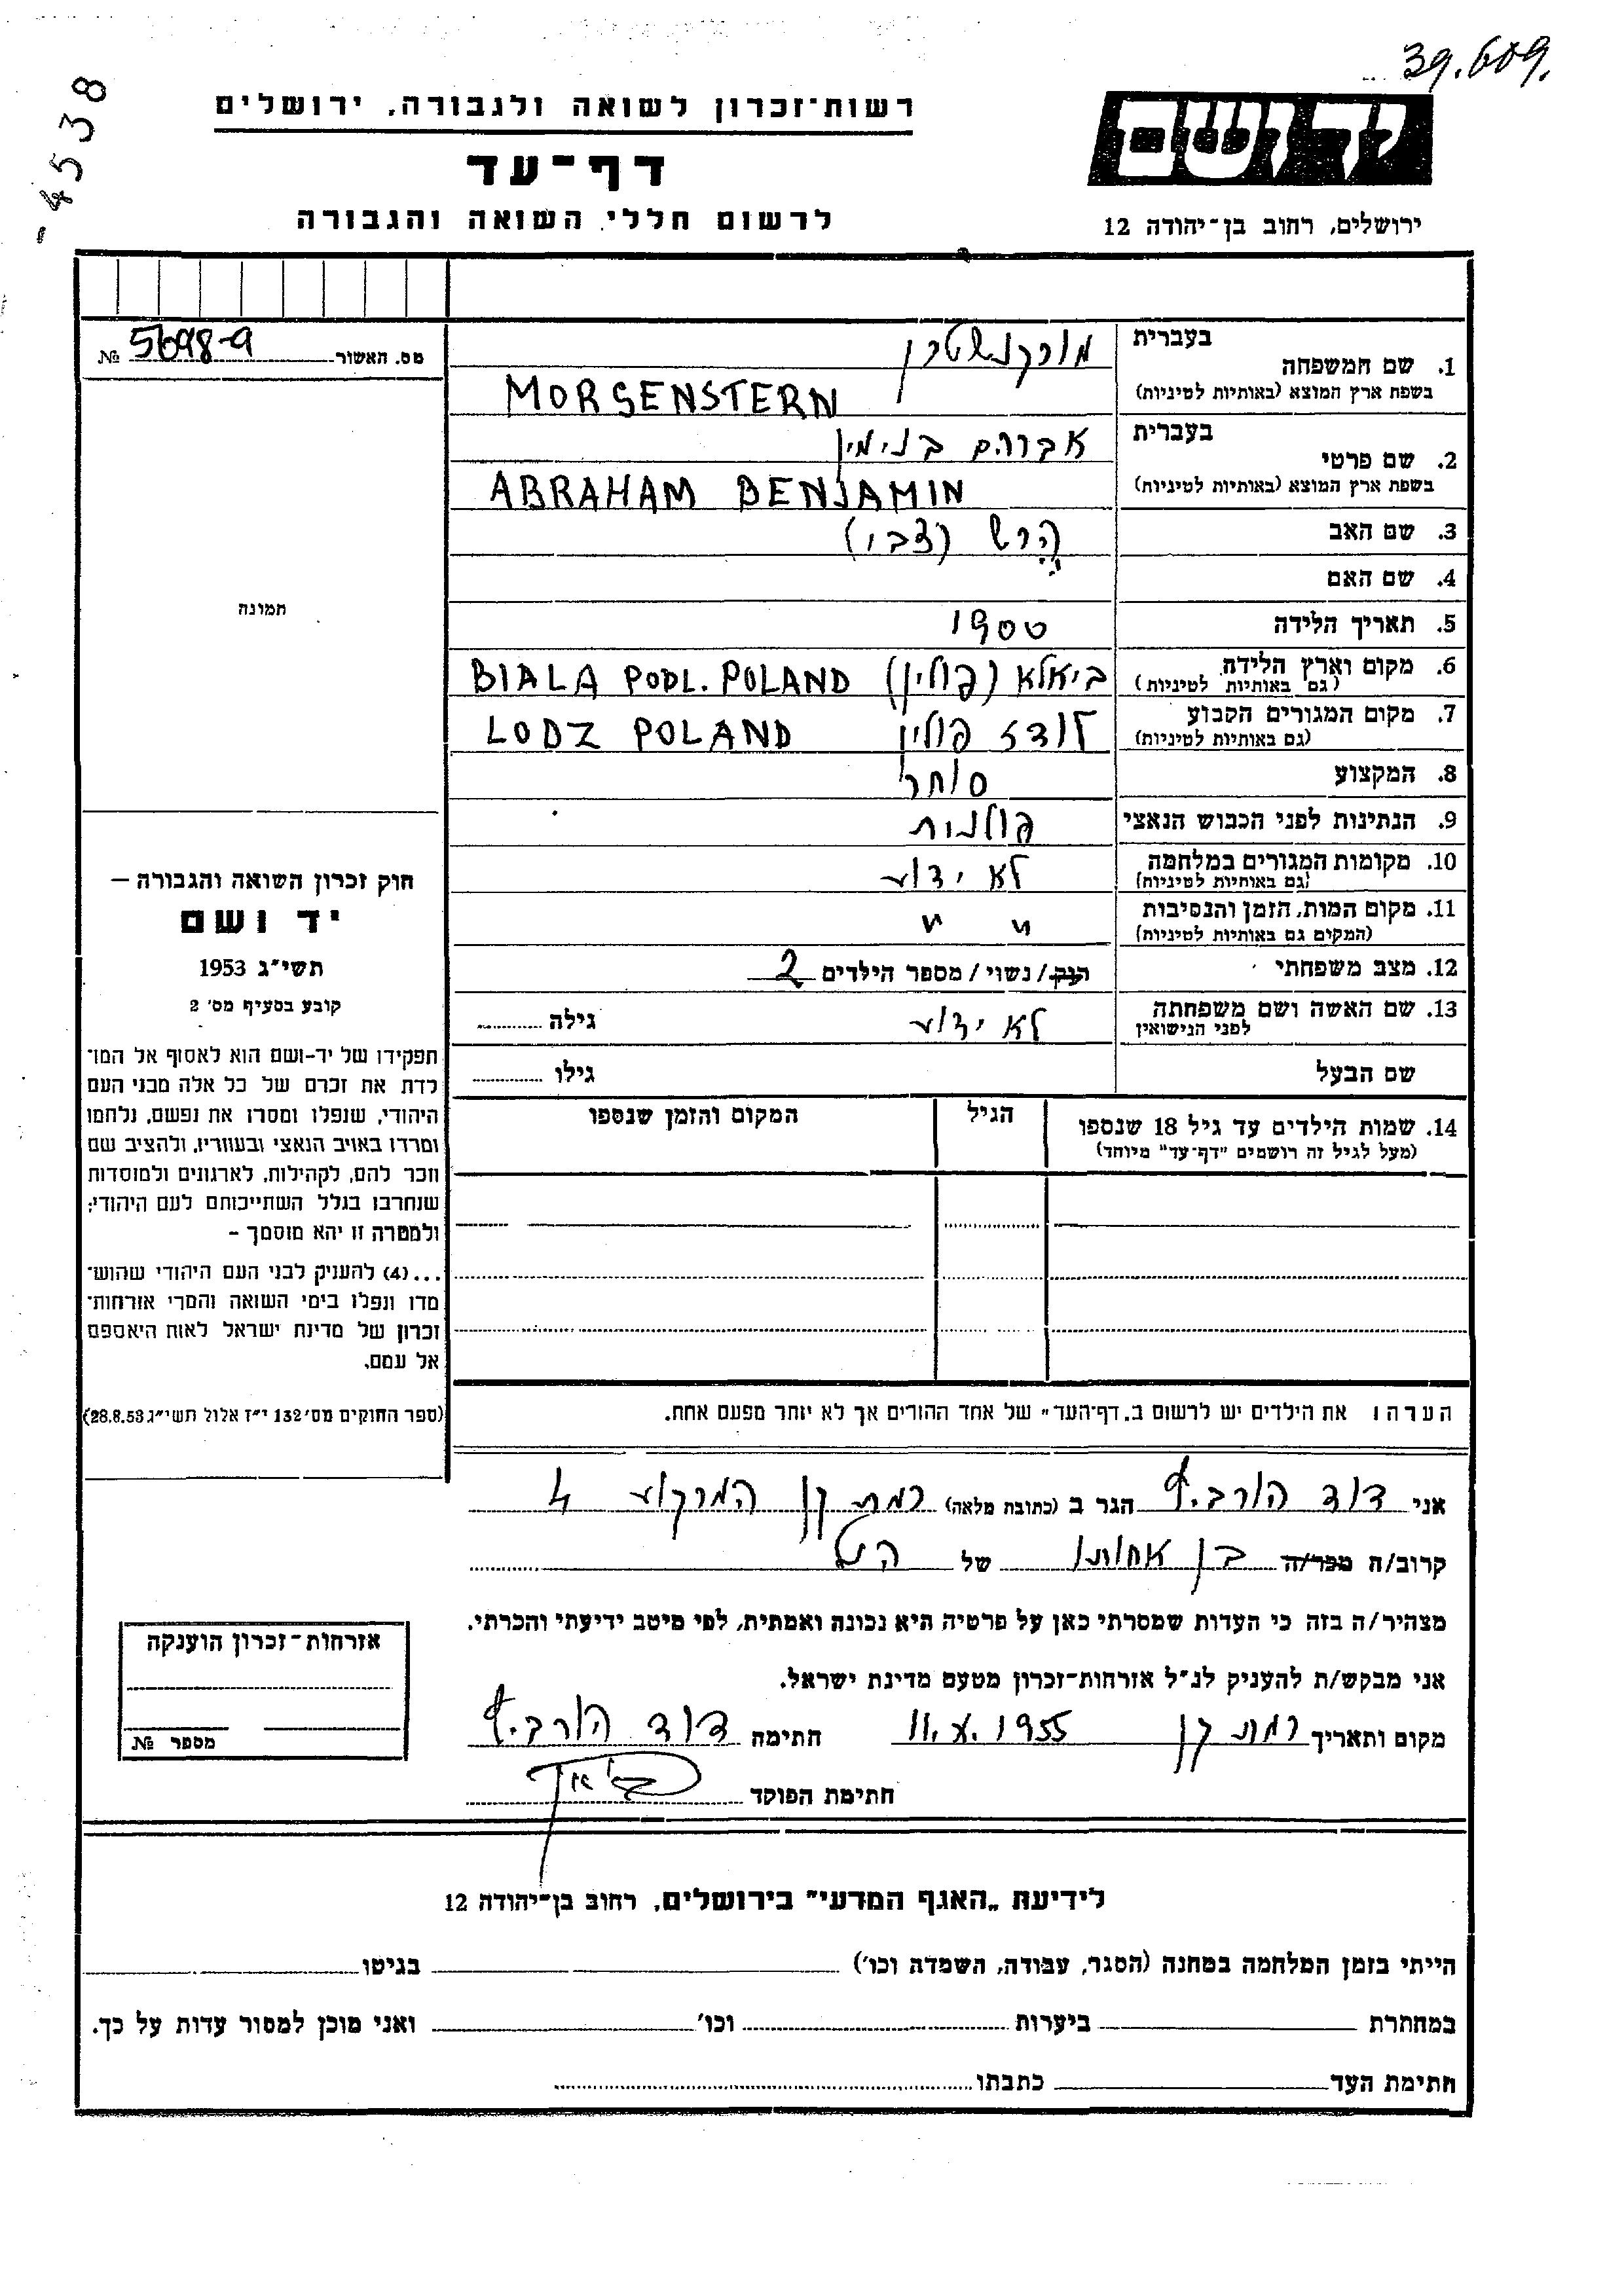 39.609.
4538-
רשות־זכרון לשואה ולגבורה, ירושלים
דף־עד
לרשום חללי השואה והגבורה
יד ושם
ירושלים, רחוב בן־יהודה 12
מס. האשור 5698-9 №
בעברית מורגנשטרן
1. שם המשפחה
בשפת ארץ המוצא (באותיות לטיניות) MORGENSTERN
בעברית אברהם בנימין
2. שם פרטי
בשפת ארץ המוצא (באותיות לטיניות) ABRAHAM BENJAMIN
3. שם האב הרש (צבי)
4. שם האם
תמונה
5. תאריך הלידה 1900
6. מקום וארץ הלידה ביאלא (פולין) BIALA PODL. POLAND
(גם באותיות לטיניות)
7. מקום המגורים הקבוע לודז פולין LODZ POLAND
(גם באותיות לטיניות)
8. המקצוע סוחר
9. הנתינות לפני הכבוש הנאצי פולנית
10. מקומות המגורים במלחמה לא ידוע
(גם באותיות לטיניות)
11. מקום המות, הזמן והנסיבות " "
(המקום גם באותיות לטיניות)
12. מצב משפחתי רווק/נשוי/מספר הילדים 2
13. שם האשה ושם משפחתה לא ידוע גילה
לפני הנישואין
שם הבעל גילו
14. שמות הילדים עד גיל 18 שנספו הגיל המקום והזמן שנספו
(מעל לגיל זה רושמים "דף־עד" מיוחד)
הערה: את הילדים יש לרשום ב„דף־העד" של אחד ההורים אך לא יותר מפעם אחת.
חוק זכרון השואה והגבורה —
יד ושם
תשי"ג 1953
קובע בסעיף מס' 2
תפקידו של יד-ושם הוא לאסוף אל המו־
לדת את זכרם של כל אלה מבני העם
היהודי, שנפלו ומסרו את נפשם, נלחמו
ומרדו באויב הנאצי ובעוזריו, ולהציב שם
וזכר להם, לקהילות, לארגונים ולמוסדות
שנחרבו בגלל השתייכותם לעם היהודי;
ולמטרה זו יהא מוסמך -
...(4) להעניק לבני העם היהודי שהוש־
מדו ונפלו בימי השואה והמרי אזרחות־
זכרון של מדינת ישראל לאות היאספם
אל עמם.
(ספר החוקים מס' 132 י"ז אלול תשי"ג 28.8.53)
אני דוד הורביץ הגר ב (כתובת מלאה) רמת גן המרקוע 4
קרוב/ה מכר/ה בן אחותו של הנ"ל
מצהיר/ה בזה כי העדות שמסרתי כאן על פרטיה היא נכונה ואמתית, לפי מיטב ידיעתי והכרתי.
אני מבקש/ת להעניק לנ"ל אזרחות-זכרון מטעם מדינת ישראל.
מקום ותאריך רמת גן 11.X.1955 חתימה דוד הורביץ
חתימת הפוקד
אזרחות-זכרון הוענקה
מספר №
לידיעת „האגף המדעי" בירושלים, רחוב בן־יהודה 12
הייתי בזמן המלחמה במחנה (הסגר, עבודה, השמדה וכו') בגיטו
במחתרת ביערות וכו' ואני מוכן למסור עדות על כך.
חתימת העד כתבתו